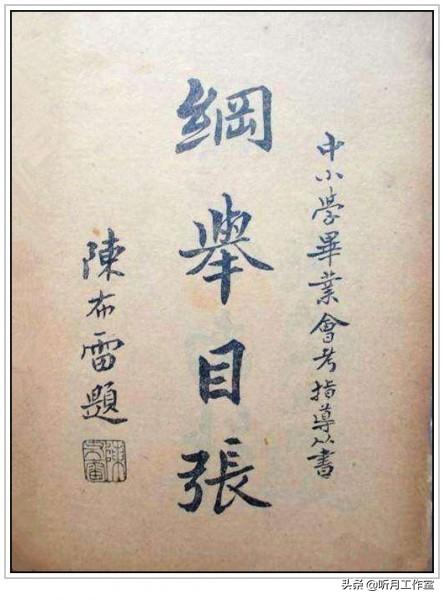 中小學畢業會考指導丛書
綱舉目張
陳布雷題
陳布雷
头条 @听月工作室